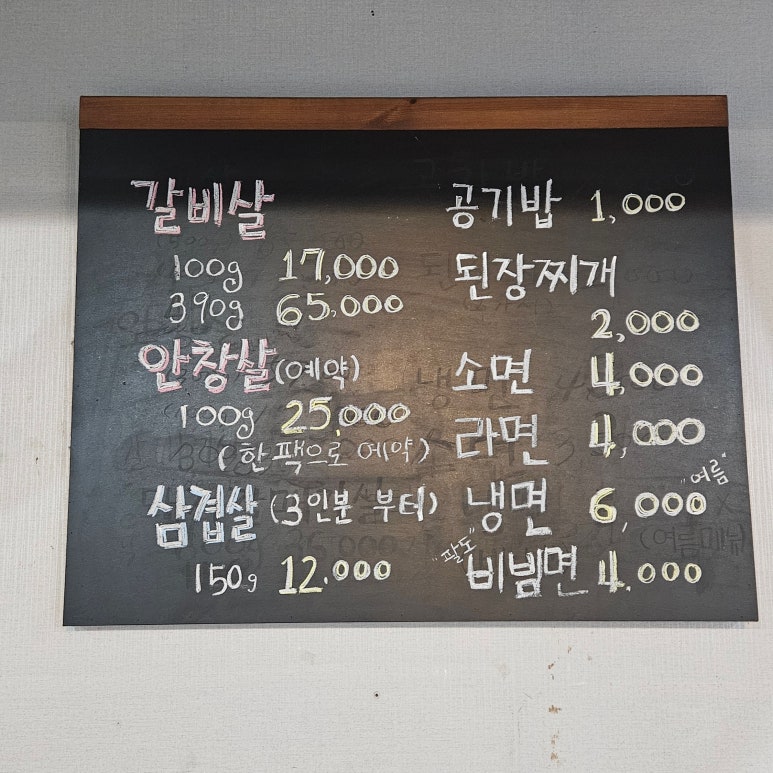 갈비살
100g 17,000
390g 65,000
안창살 (예약)
100g 25,000
(한팩으로 예약)
삼겹살 (3인분 부터)
150g 12.000
공기밥 1,000
된장찌개
2,000
소면 4,000
라면 4,000
냉면 6,000 "여름"
"팔도" 비빔면 4.000